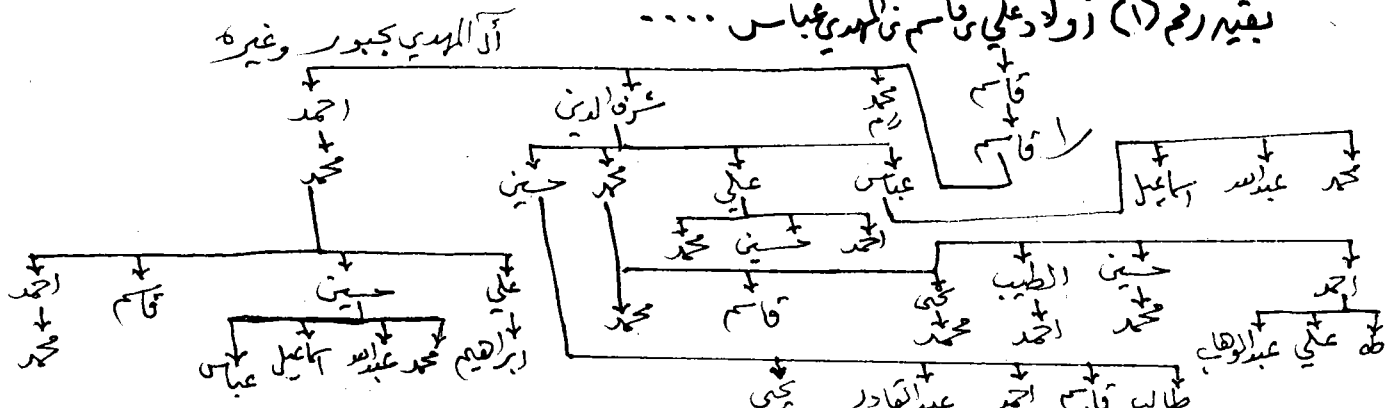 بقيه رقم (١) أولاد علي بن قاسم بن المهدي عباس ....
آل المهدي بجبور وغيره
قاسم
محمد شرف الدين احمد
قاسم
محمد
محمد عبدالله اسماعيل
عباس علي محمد حسين
احمد حسين محمد
احمد حسين الطيب يحيى قاسم محمد
علي حسين قاسم احمد
طه علي عبدالوهاب
محمد احمد محمد
ابراهيم محمد عبدالله اسماعيل عباس
محمد
طالب قاسم احمد عبدالقادر يحيى